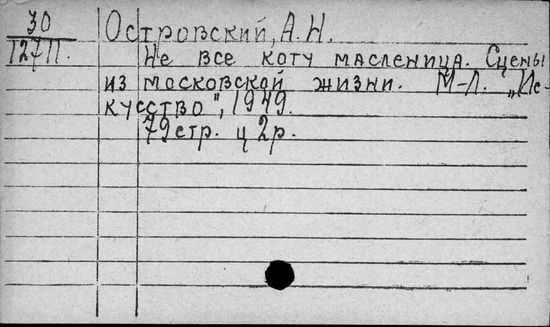 30
12711.
Островский, А.Н.
Не все коту масленица. Сцены
из московской жизни. М-Л. „Ис-
кусство", 1949.
79 стр. ц 2р.